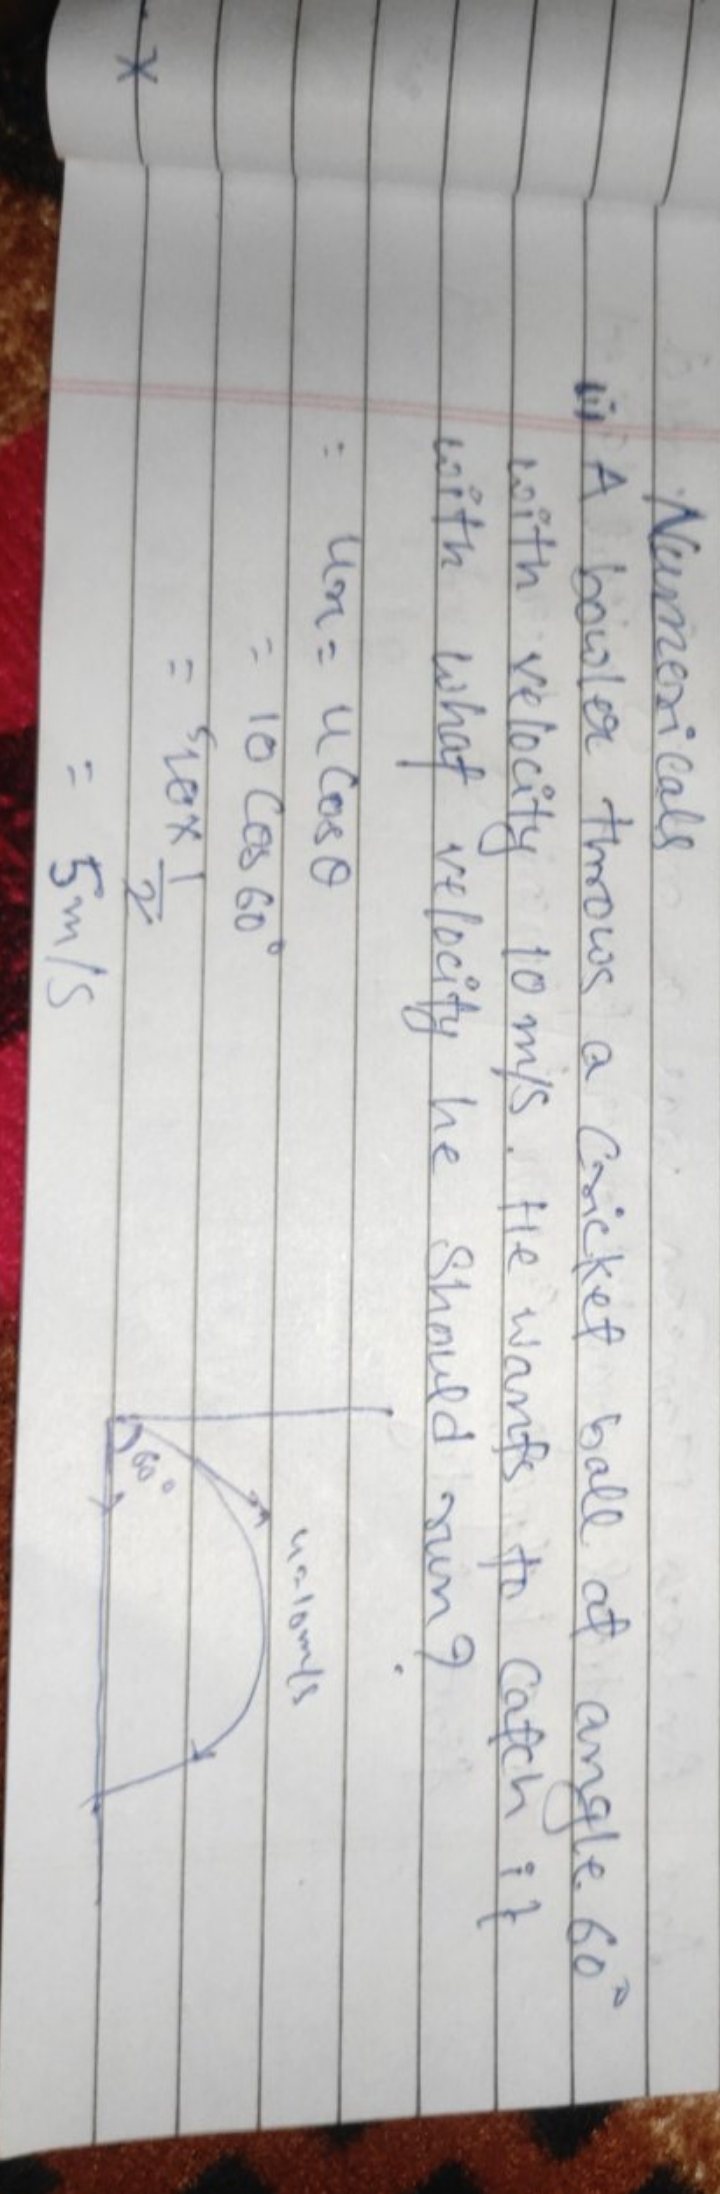 Numericals
ii) A bowler throws a Cricket ball at angle 60°
with velocity 10 m/s. He wants to catch it
with what velocity he should run?
= ux = u Cos θ
= 10 Cos 60°
= 5 10 × 1/2
= 5 m/s
u=10m/s
60°
x